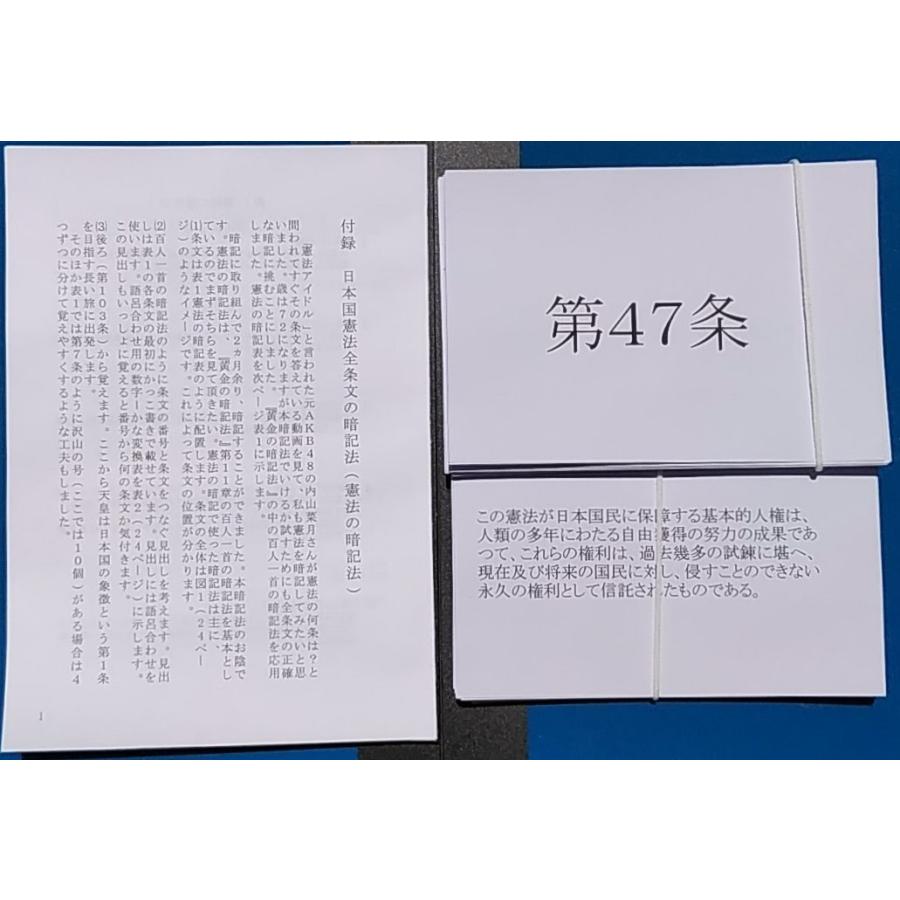 付録　日本国憲法全条文の暗記法（憲法の暗記法）
「憲法アイドル」と言われた元ＡＫＢ４８の内山菜月さんが憲法の何条は？と
問われてすぐその条文を答えている動画を見て、私も憲法を暗記してみたいと思
いました。歳は７２になりますが本暗記法でいけるか試すためにも全条文の正確
な暗記に挑むことにしました。『黄金の暗記法』の中の百人一首の暗記法を応用
しました。憲法の暗記表を次ページ表１に示します。
暗記に取り組んで２ヵ月余り、暗記することができました。本暗記法のお陰で
す。憲法の暗記法は、『黄金の暗記法』第１１章の百人一首の暗記法を基本とし
ているのでまずそちらを見て頂きたい。憲法の暗記で使った暗記法は主に、
⑴条文は表１憲法の暗記表のように配置します。条文の全体は図１（２４ペー
ジ）のようなイメージです。これによって条文の位置が分かります。
⑵百人一首の暗記法のように条文の番号と条文をつなぐ見出しを考えます。見出
しは表１の各条文の最初にかっこ書きで載せています。見出しには語呂合わせを
使います。語呂合わせ用の数字ーかな変換表を表２（２４ページ）に示します。
この見出しもいっしょに覚えると番号から何の条文か気付きます。
⑶後ろ（第１０３条）から覚えます。ここから天皇は日本国の象徴という第１条
を目指す長い旅に出発します。
そのほか表１では第７条のように沢山の号（ここでは１０個）がある場合は４
つずつに分けて覚えやすくするような工夫もしました。
1
第47条
この憲法が日本国民に保障する基本的人権は、
人類の多年にわたる自由獲得の努力の成果であ
つて、これらの権利は、過去幾多の試錬に堪へ、
現在及び将来の国民に対し、侵すことのできない
永久の権利として信託されたものである。